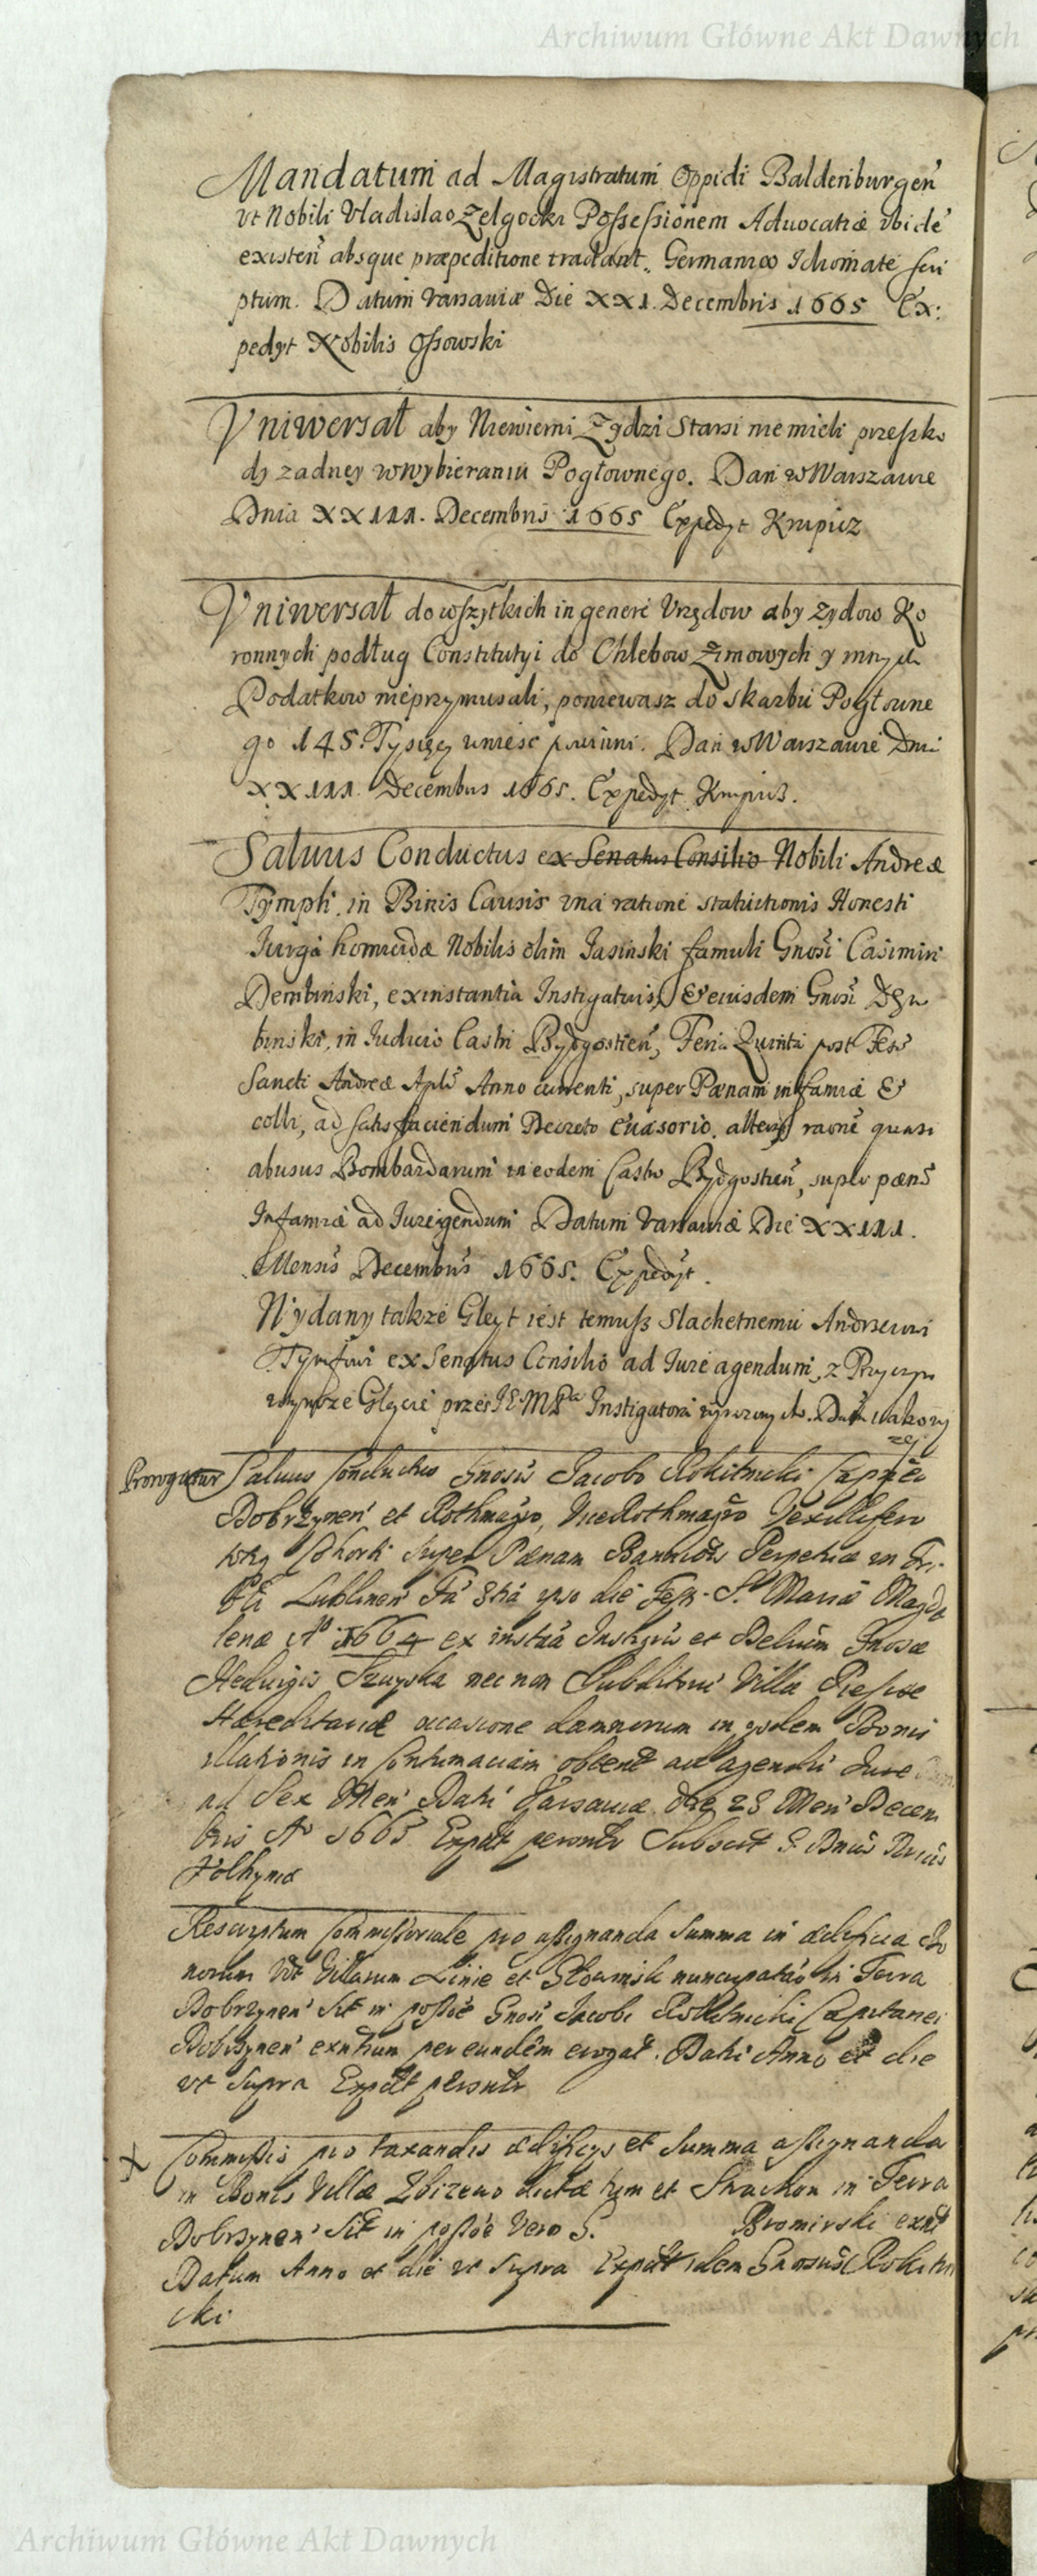 Archiwum Główne Akt Dawnych
Mandatum ad Magistratum Oppidi Baldenburgen̄
vt Nobili Vladislao Zelgocki Possessionem Aduocatiæ ibidē
existen̄ absque præpeditione tradant. Germanico Idiomate scri
ptum. Datum Varsauiæ Die XXI. Decembris 1665 Ex:
pedyt Nobilis Ossowski
Vniwersał aby Niewierni Zydzi Starsi nie mieli przeszko
dy zadney w wybieraniu Pogłownego. Dan w Warszawie
Dnia XXIII. Decembris 1665 Expedyt Krupicz
Vniwersał do wszytkich in genere Vrzędow aby zydow Ko
ronnych podług Constitutyi do Chlebow Zimowych y innych
Podatkow nieprzymusali, poniewasz do skarbu Pogłowne
go 145. Tysięcy wnieść powinni. Dan w Warszawie Dnia
XXIII. Decembris 1665. Expedyt Krupisz.
Saluus Conductus ex Senatus Consilio Nobili Andreæ
Tympfi, in Binis Causis vna ratione statuitionis Honesti
Jurga homicidæ Nobilis olim Jasinski famuli Gnosi Casimiri
Dembinski, ex instantia Instigatoris, & eiusdem Gnosi Dem
binski, in Iudicio Castri Bydgostien̄, Feria Quinta post Fes
Sancti Andreæ Apli Anno currenti, super Pœnam infamiæ &
colli, ad satisfaciendum Decreto Euasorio. altera raōne quasi
abusus Bombardarum in eodem Castro Bydgostien̄, super pœn
Infamiæ ad Iure agendum Datum Varsauiæ Die XXIII.
Mensis Decembris 1665. Expedyt.
Wydany także Gleyt iest temusz Slachetnemu Andrzeiowi
Tymfowi ex Senatus Consilio ad Iure agendum, z Przyczyn
wwyzsze Gleycie przes IE. M Pa Instigatora wyrazonych. Datum iakowy
zey
Prorogatur Saluus Conductus Gnosis Jacobo Rokitnicki Capneo
Dobrzynen̄ et Rothmagro, ViceRothmagro Vexillifero
totiq Cohorti super Pœnam Bannitiōis Perpetuæ in Tri
bli Lublinen̄ Fa 3tia ipso die Festi Sæ Mariæ Magda
lenæ Ao 1664 ex instā Instigris et Delatūm Gnosæ
Heduigis Szuyska nec non Subditorū Villæ
Hæreditariæ occasione damnorum in ijsdem Bonis
illationis in Contumaciam obtent ad agendū Iure
ad Sex Men̄ Dati Varsauiæ die 28 Men̄ Decem
bris Ao 1665 Expdt personlr Subscrt S. Bnus
Volhyniæ
Rescriptum Commissoriale pro assignanda Summa in ædificia Bo
norum vdt Villarum Linie et nuncupatās in Terra
Dobrzynen̄ Sit in possōe Gnosi Jacobi Rokitnicki Capitanei
Dobrzynen̄ exntium per eundēm erogat. Dati Anno et die
vt Supra Expdt personlr
X Commissio pro taxandis ædificijs et Summa assignanda
in Bonis Villæ Zbizewo dictæ tum et Strachon in Terra
Dobrzynen̄ Sit in possōe vero G. Bromirski exnt
Datum Anno et die vt Supra Expdt idem Gnosus Rokitni
cki
Archiwum Główne Akt Dawnych